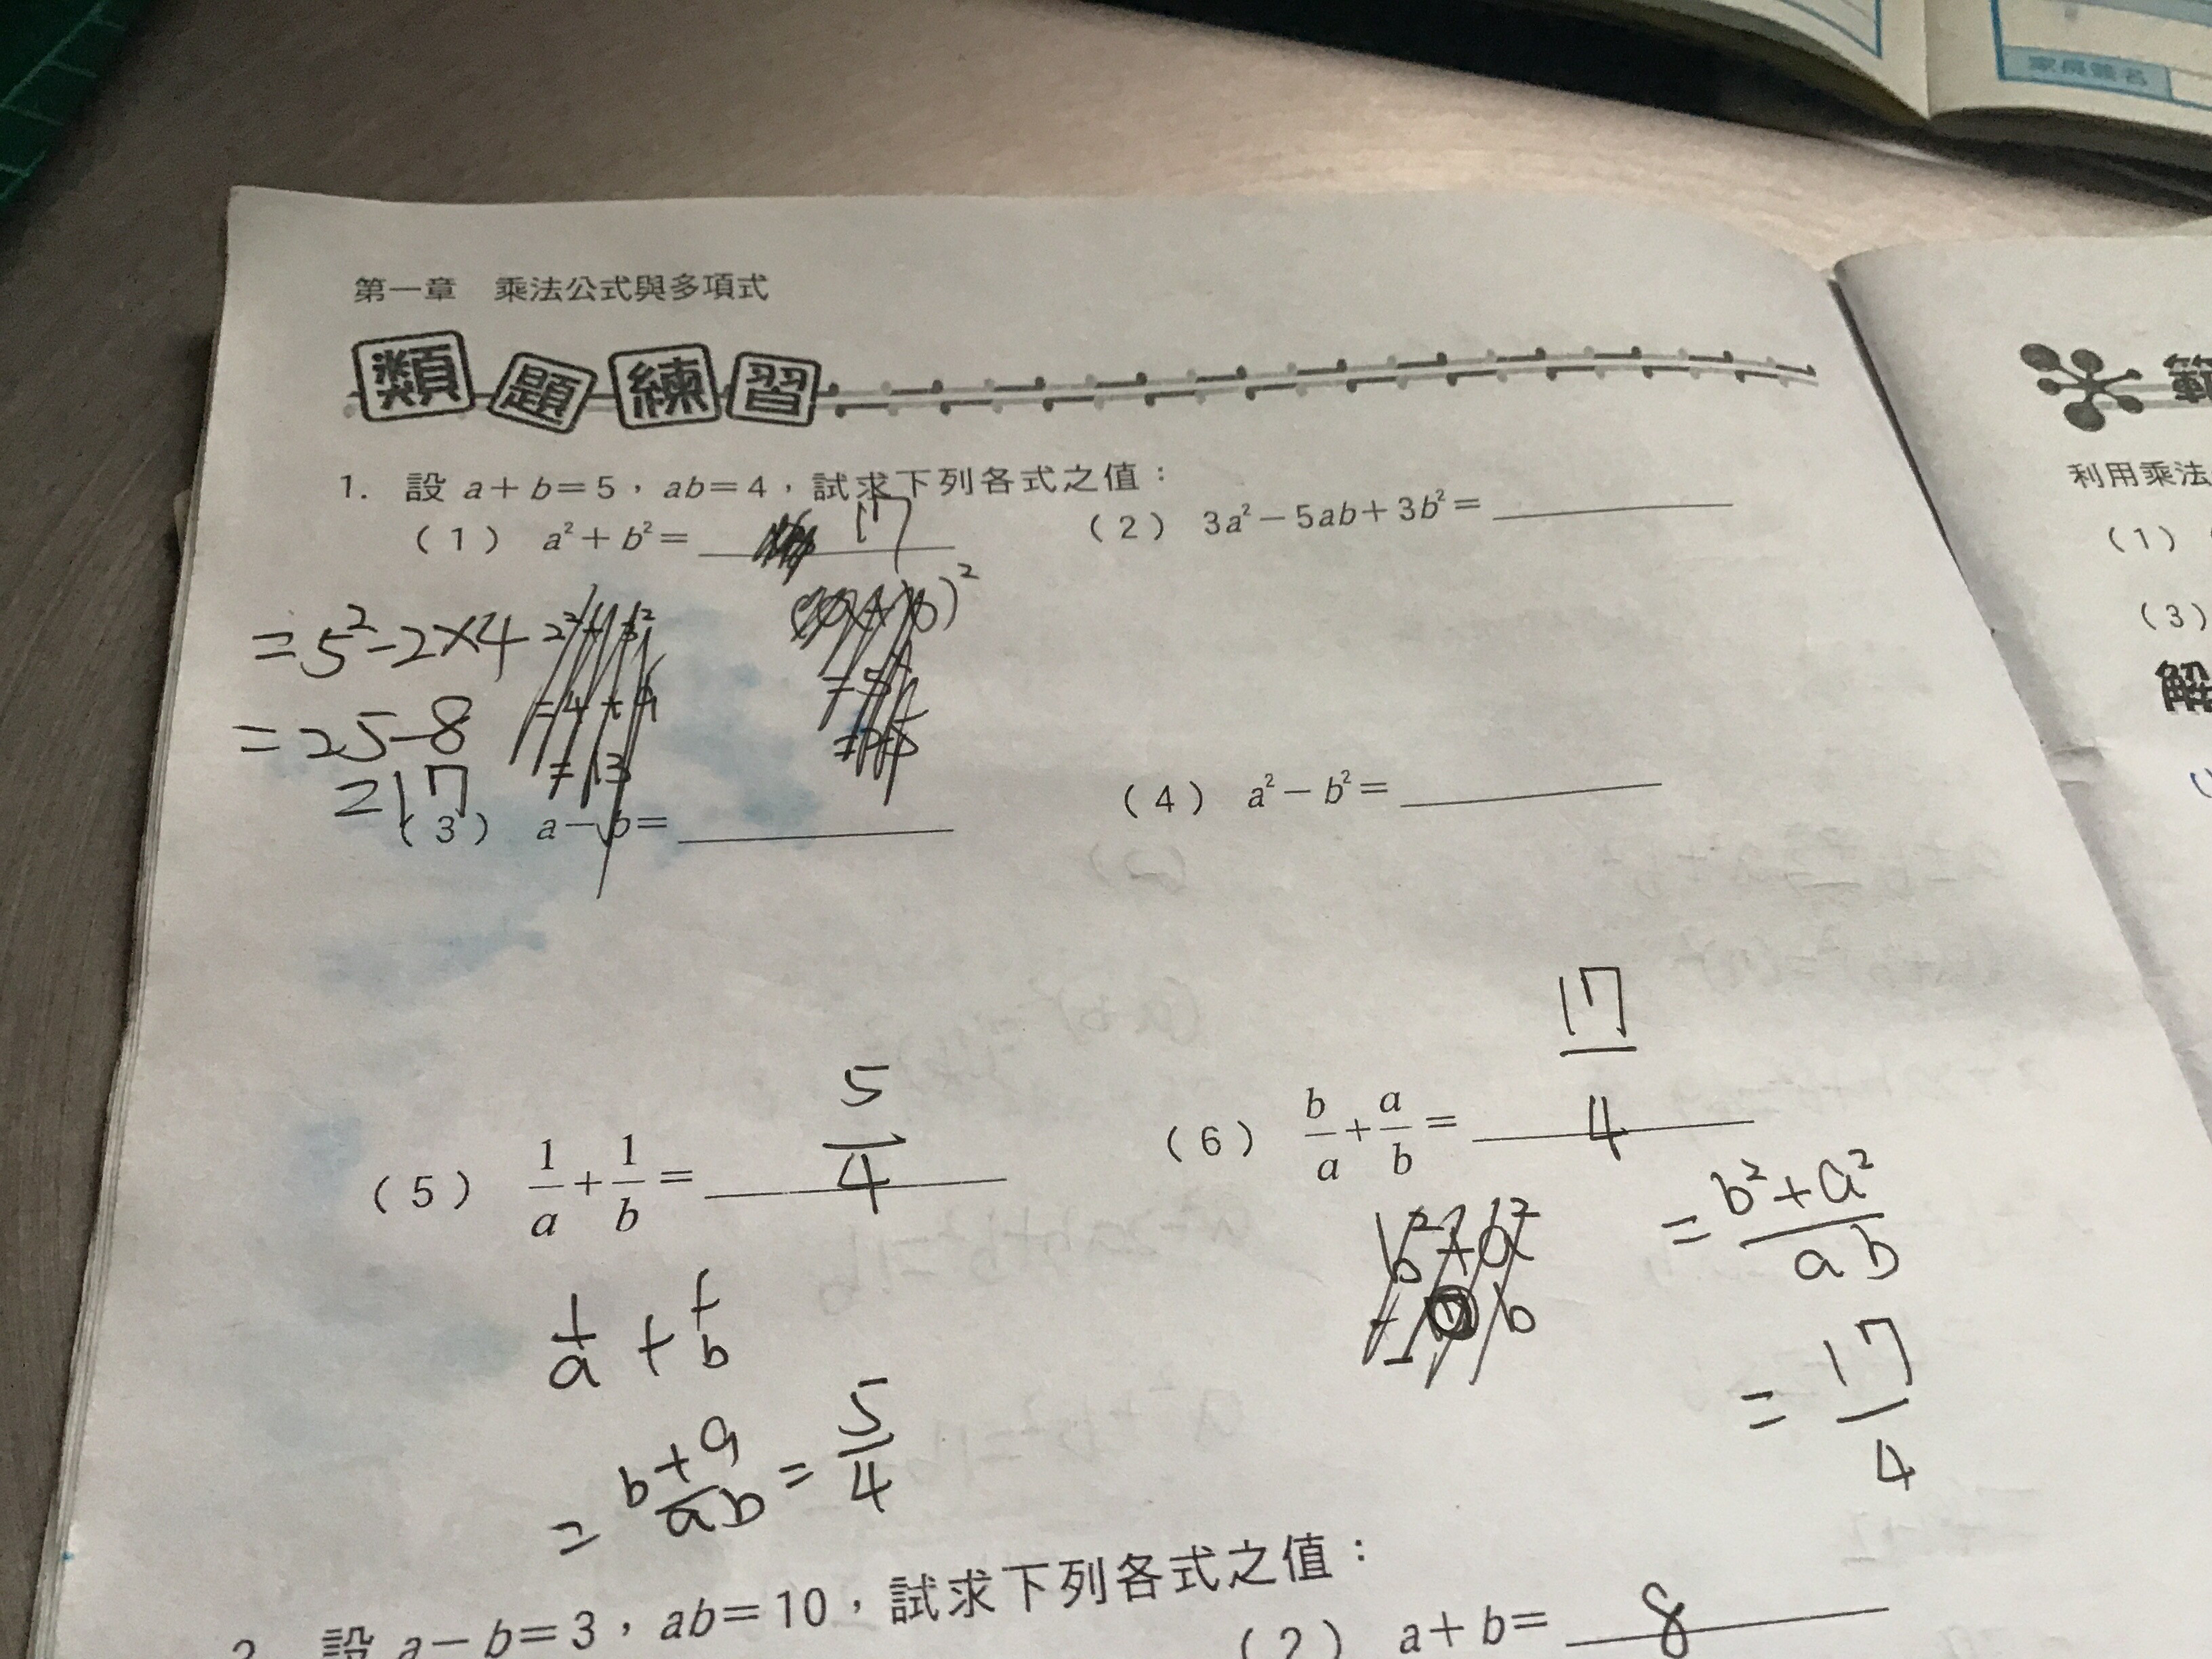 家長簽名
第一章 乘法公式與多項式
類題練習
1. 設 a+b=5，ab=4，試求下列各式之值：
(1) a²+b²= 17
(2) 3a²-5ab+3b²=
=5²-2×4
=25-8
=17
(3) a-b=
(4) a²-b²=
(5) 1/a+1/b= 5/4
1/a+1/b
=b+a/ab=5/4
(6) b/a+a/b= 17/4
=b²+a²/ab
=17/4
設 a-b=3，ab=10，試求下列各式之值：
(2) a+b= 8
利用乘法
(1)
(3)
解